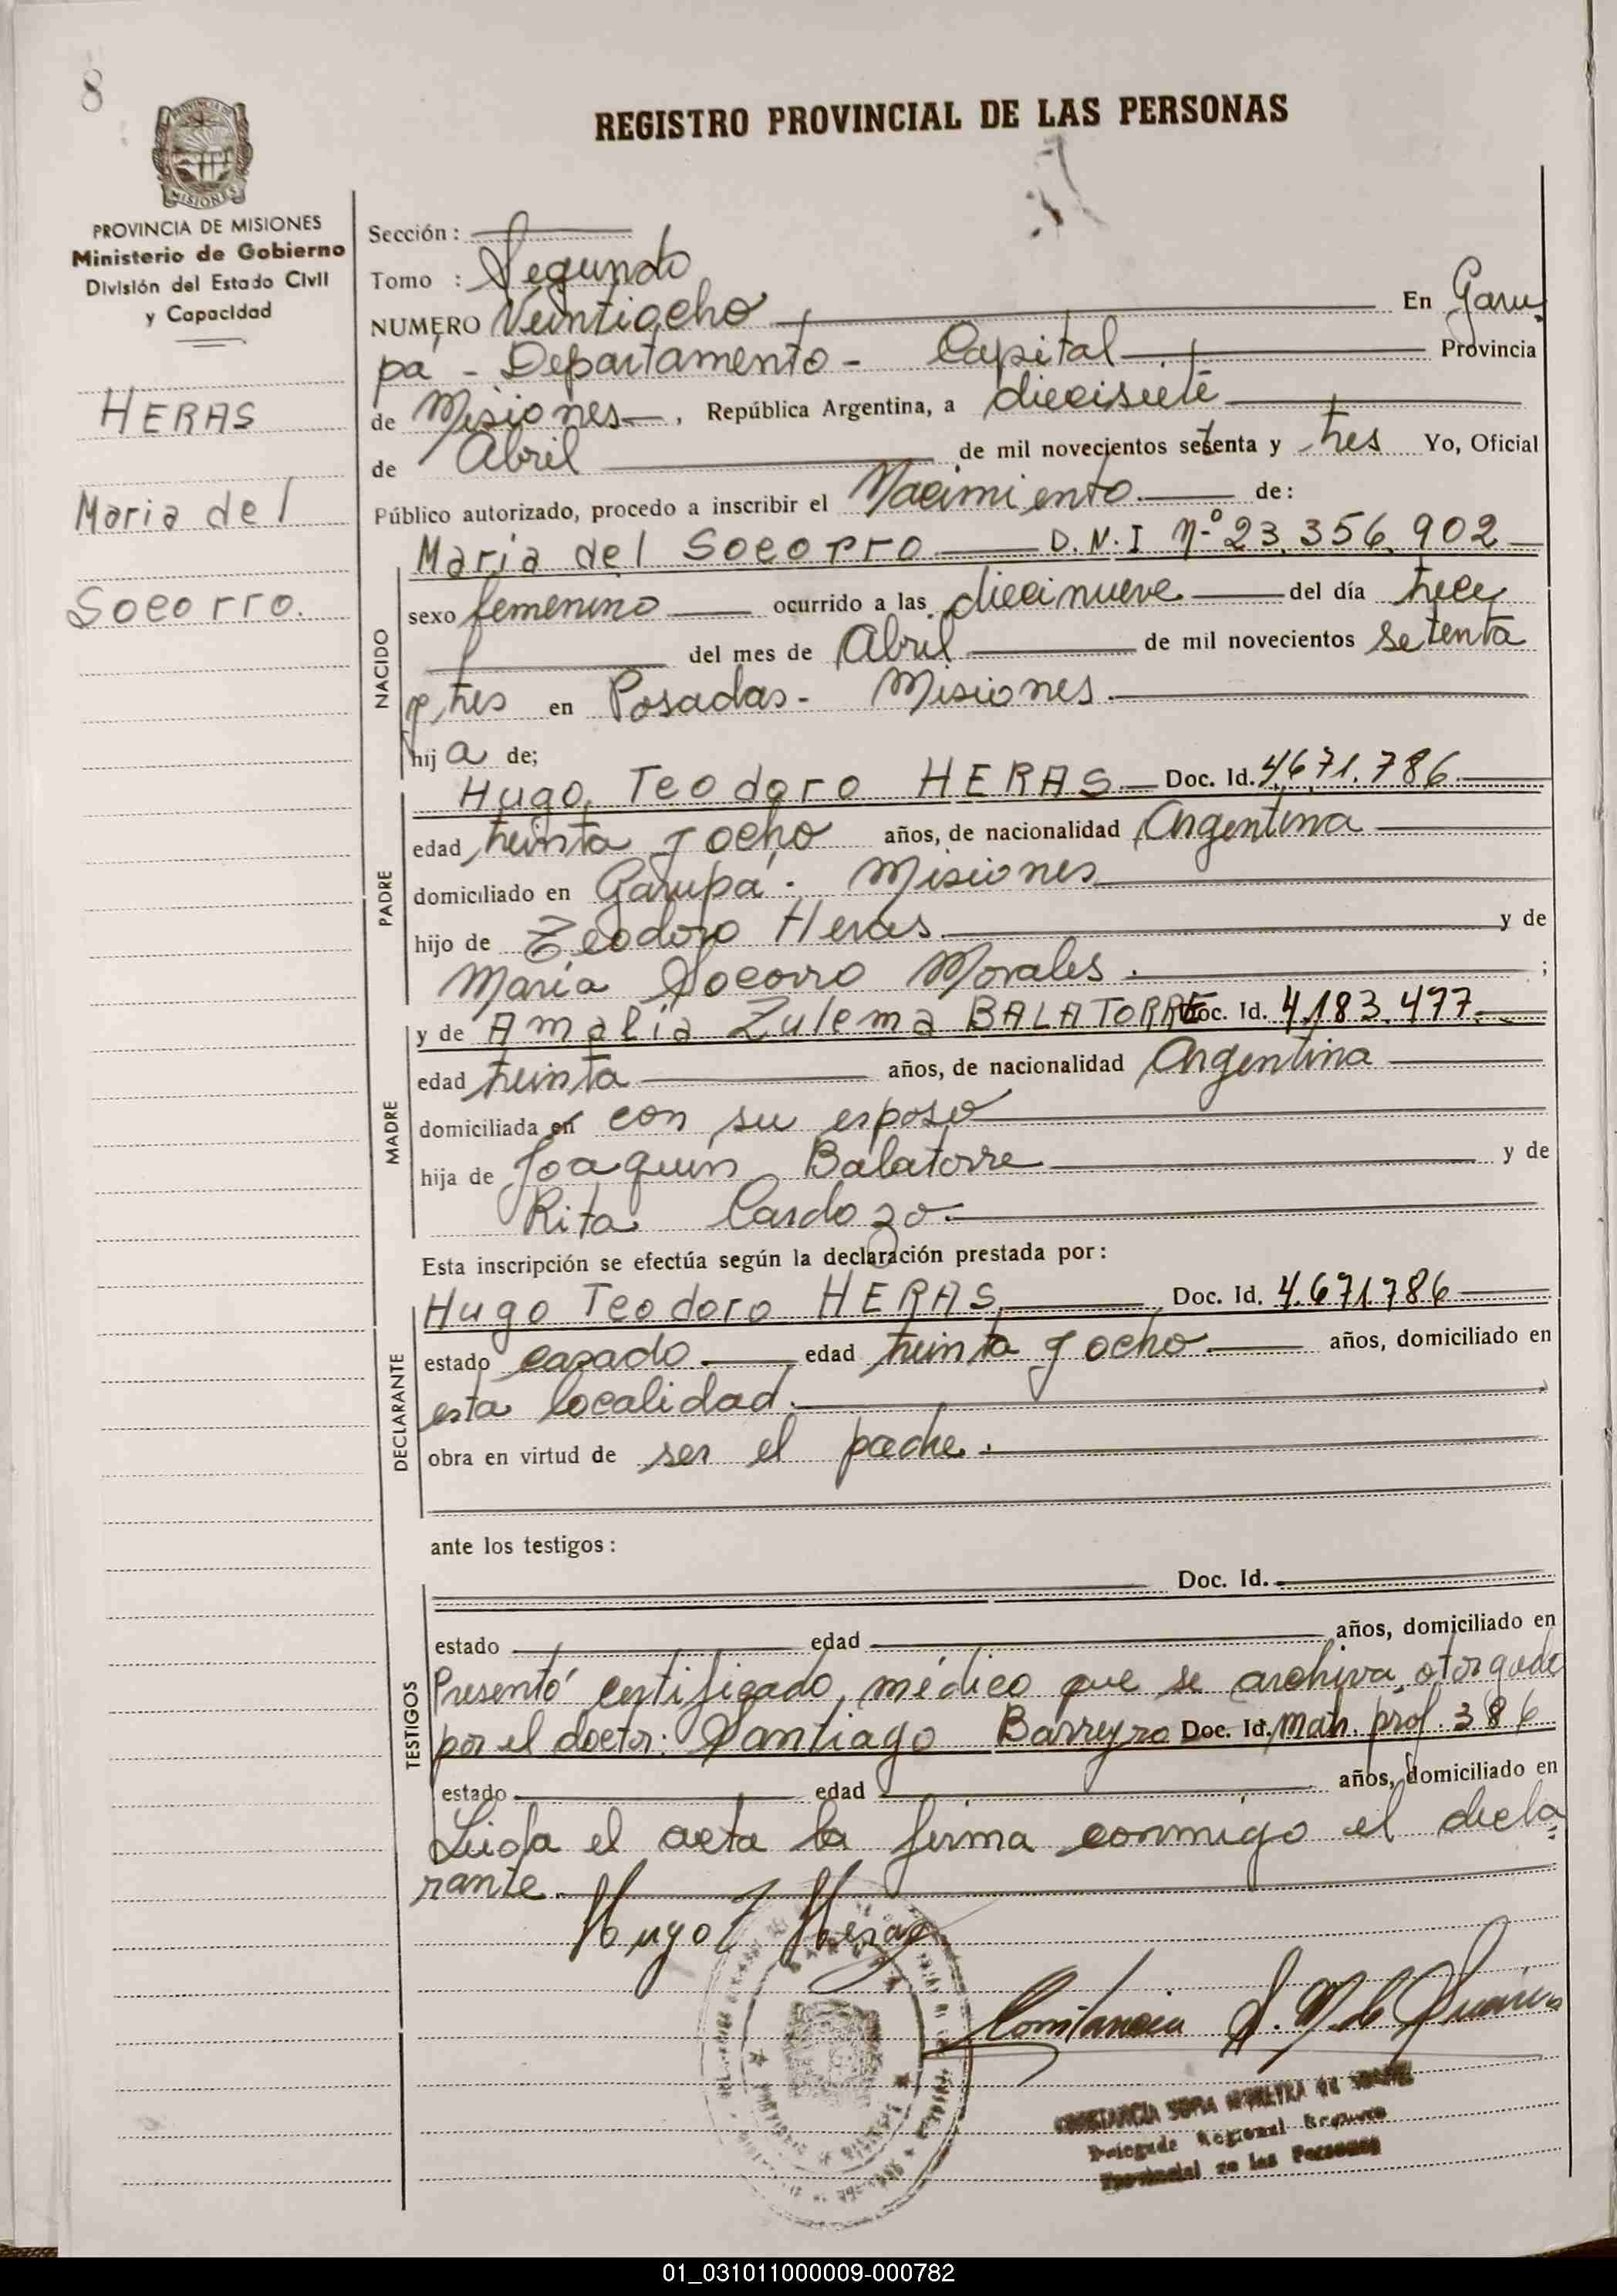 8
REGISTRO PROVINCIAL DE LAS PERSONAS
MISIONES
PROVINCIA DE MISIONES
Ministerio de Gobierno
División del Estado Civil
y Capacidad
HERAS
Maria del
Socorro.
Sección :
Tomo : Segundo
NUMERO Veintiocho En Garu
pá - Departamento - Capital Provincia
de Misiones , República Argentina, a diecisiete
de Abril de mil novecientos setenta y tres Yo, Oficial
Público autorizado, procedo a inscribir el Nacimiento de:
NACIDO
Maria del Socorro D.N.I Nº 23.356.902
sexo femenino ocurrido a las diecinueve del día trece
del mes de Abril de mil novecientos setenta
y tres en Posadas - Misiones.
hij a de;
PADRE
Hugo Teodoro HERAS Doc. Id. 4.671.786
edad treinta y ocho años, de nacionalidad Argentina
domiciliado en Garupá. Misiones
hijo de Teodoro Heras y de
María Socorro Morales. ;
MADRE
y de Amalia Zulema BALATORRE Doc. Id. 4.183.477
edad treinta años, de nacionalidad Argentina
domiciliada en con su esposo
hija de Joaquín Balatorre y de
Rita Cardozo.
Esta inscripción se efectúa según la declaración prestada por :
DECLARANTE
Hugo Teodoro HERAS Doc. Id. 4.671.786
estado casado edad treinta y ocho años, domiciliado en
esta localidad.
obra en virtud de ser el padre.
ante los testigos :
TESTIGOS
Doc. Id.
estado edad años, domiciliado en
Presentó certificado médico que se archiva otorgado
por el doctor: Santiago Barreyro Doc. Id. mat. prof. 386
estado edad años, domiciliado en
Leída el acta la firma conmigo el decla
rante.
Hugo T Heras
Constancia S. M. de
CONSTANCIA
Delegada Regional Registro
Provincial de las Personas
01_031011000009-000782